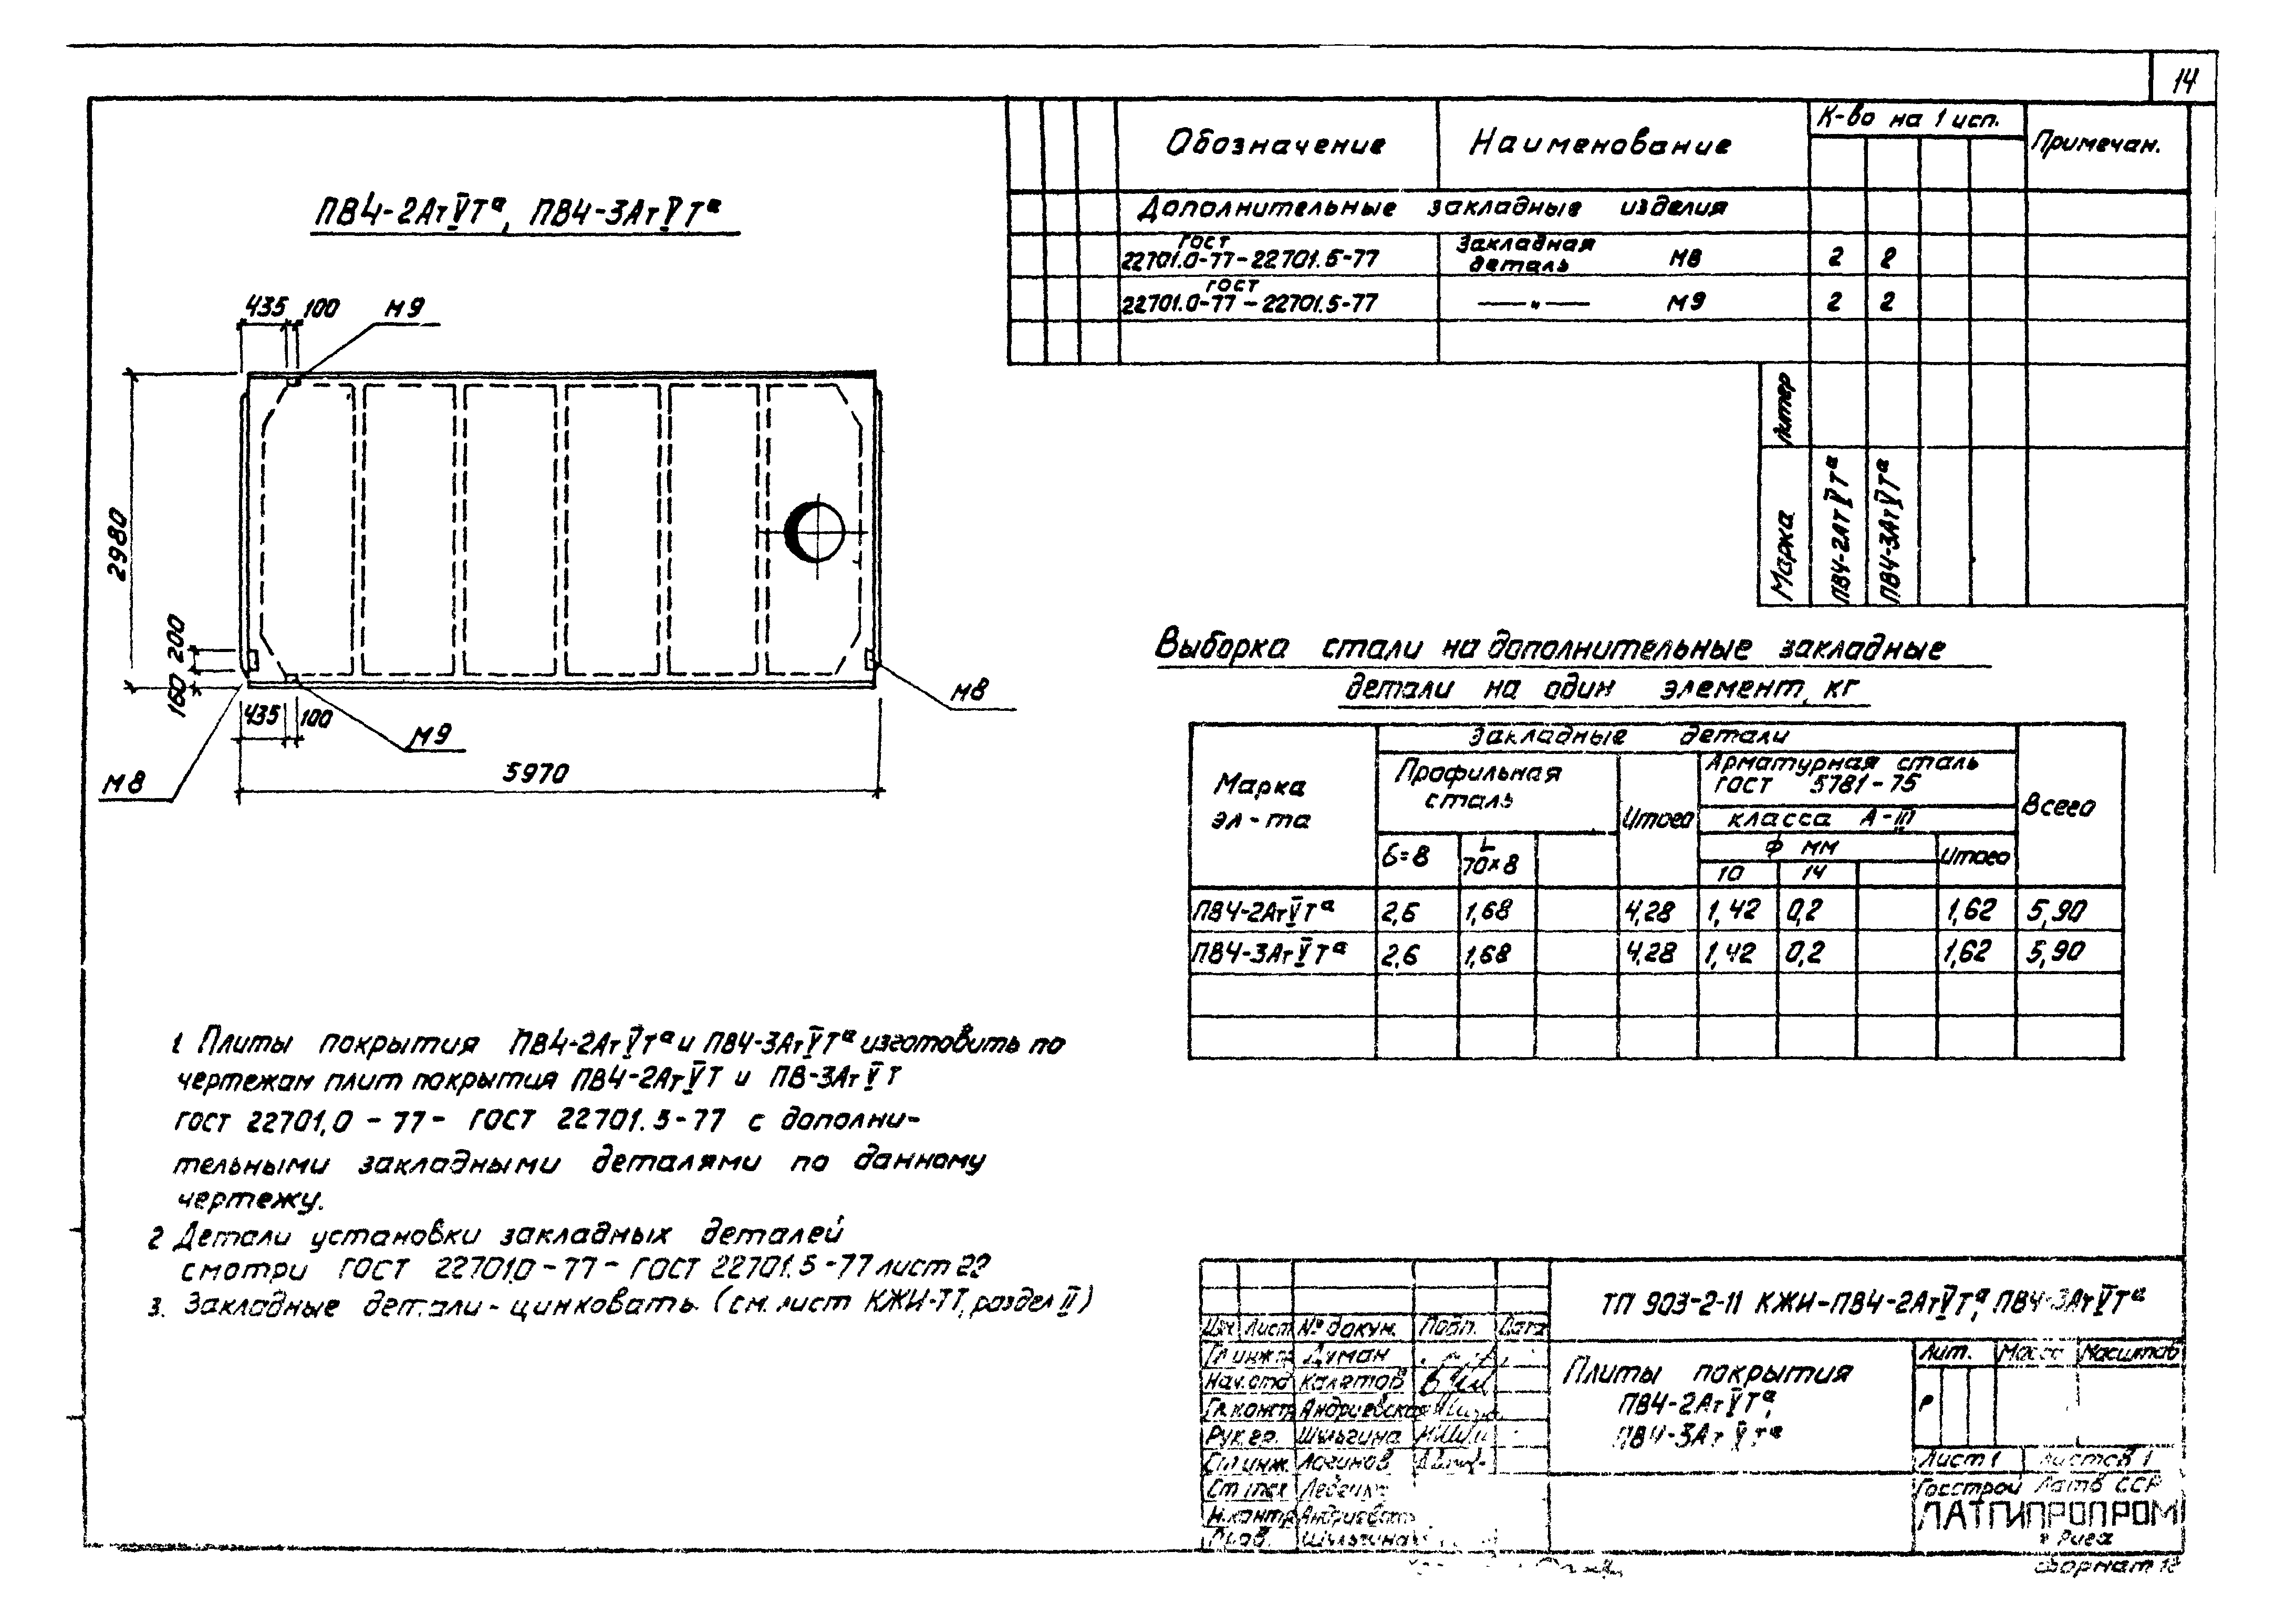 14
ПВ4-2АтVТª, ПВ4-3АтVТª
435 100 М9
2980
200
160
435 100
М9
М8
М8
5970
Обозначение Наименование К-во на 1 исп. Примечан.
Дополнительные закладные изделия
ГОСТ 22701.0-77-22701.5-77 Закладная деталь М8 2 2
ГОСТ 22701.0-77-22701.5-77 —"— М9 2 2
Литер
Марка ПВ4-2АтVТª ПВ4-3АтVТª
Выборка стали на дополнительные закладные
детали на один элемент, кг
Марка эл-та
Закладные детали
Профильная сталь
Итого
Арматурная сталь
ГОСТ 5781-75
класса А-III
Всего
ф мм
Итого
б=8 L 70×8 10 14
ПВ4-2АтVТª 2,6 1,68 4,28 1,42 0,2 1,62 5,90
ПВ4-3АтVТª 2,6 1,68 4,28 1,42 0,2 1,62 5,90
1 Плиты покрытия ПВ4-2АтVТª и ПВ4-3АтVТª изготовить по
чертежам плит покрытия ПВ4-2АтVТ и ПВ-3АтVТ
ГОСТ 22701.0-77- ГОСТ 22701.5-77 с дополни-
тельными закладными деталями по данному
чертежу.
2 Детали установки закладных деталей
смотри ГОСТ 22701.0-77- ГОСТ 22701.5-77 лист 22
3. Закладные детали - цинковать. (см. лист КЖИ-ТТ, раздел II)
ТП 903-2-11 КЖИ-ПВ4-2АтVТª, ПВ4-3АтVТª
Изм Лист № докум. Подп. Дата
Гл инж.пр Думан
Нач.отд Калетов
Гл.констр Андриевская
Рук.гр. Шульгина
Ст.инж. Логинов
Ст.тех
Н.контр
Пров. Шульгина
Плиты покрытия
ПВ4-2АтVТª,
ПВ4-3АтVТª
Лит. Масса Масштаб
Р
Лист 1 Листов 1
Госстрой Латв ССР
ЛАТГИПРОПРОМ
г Рига
Формат 12